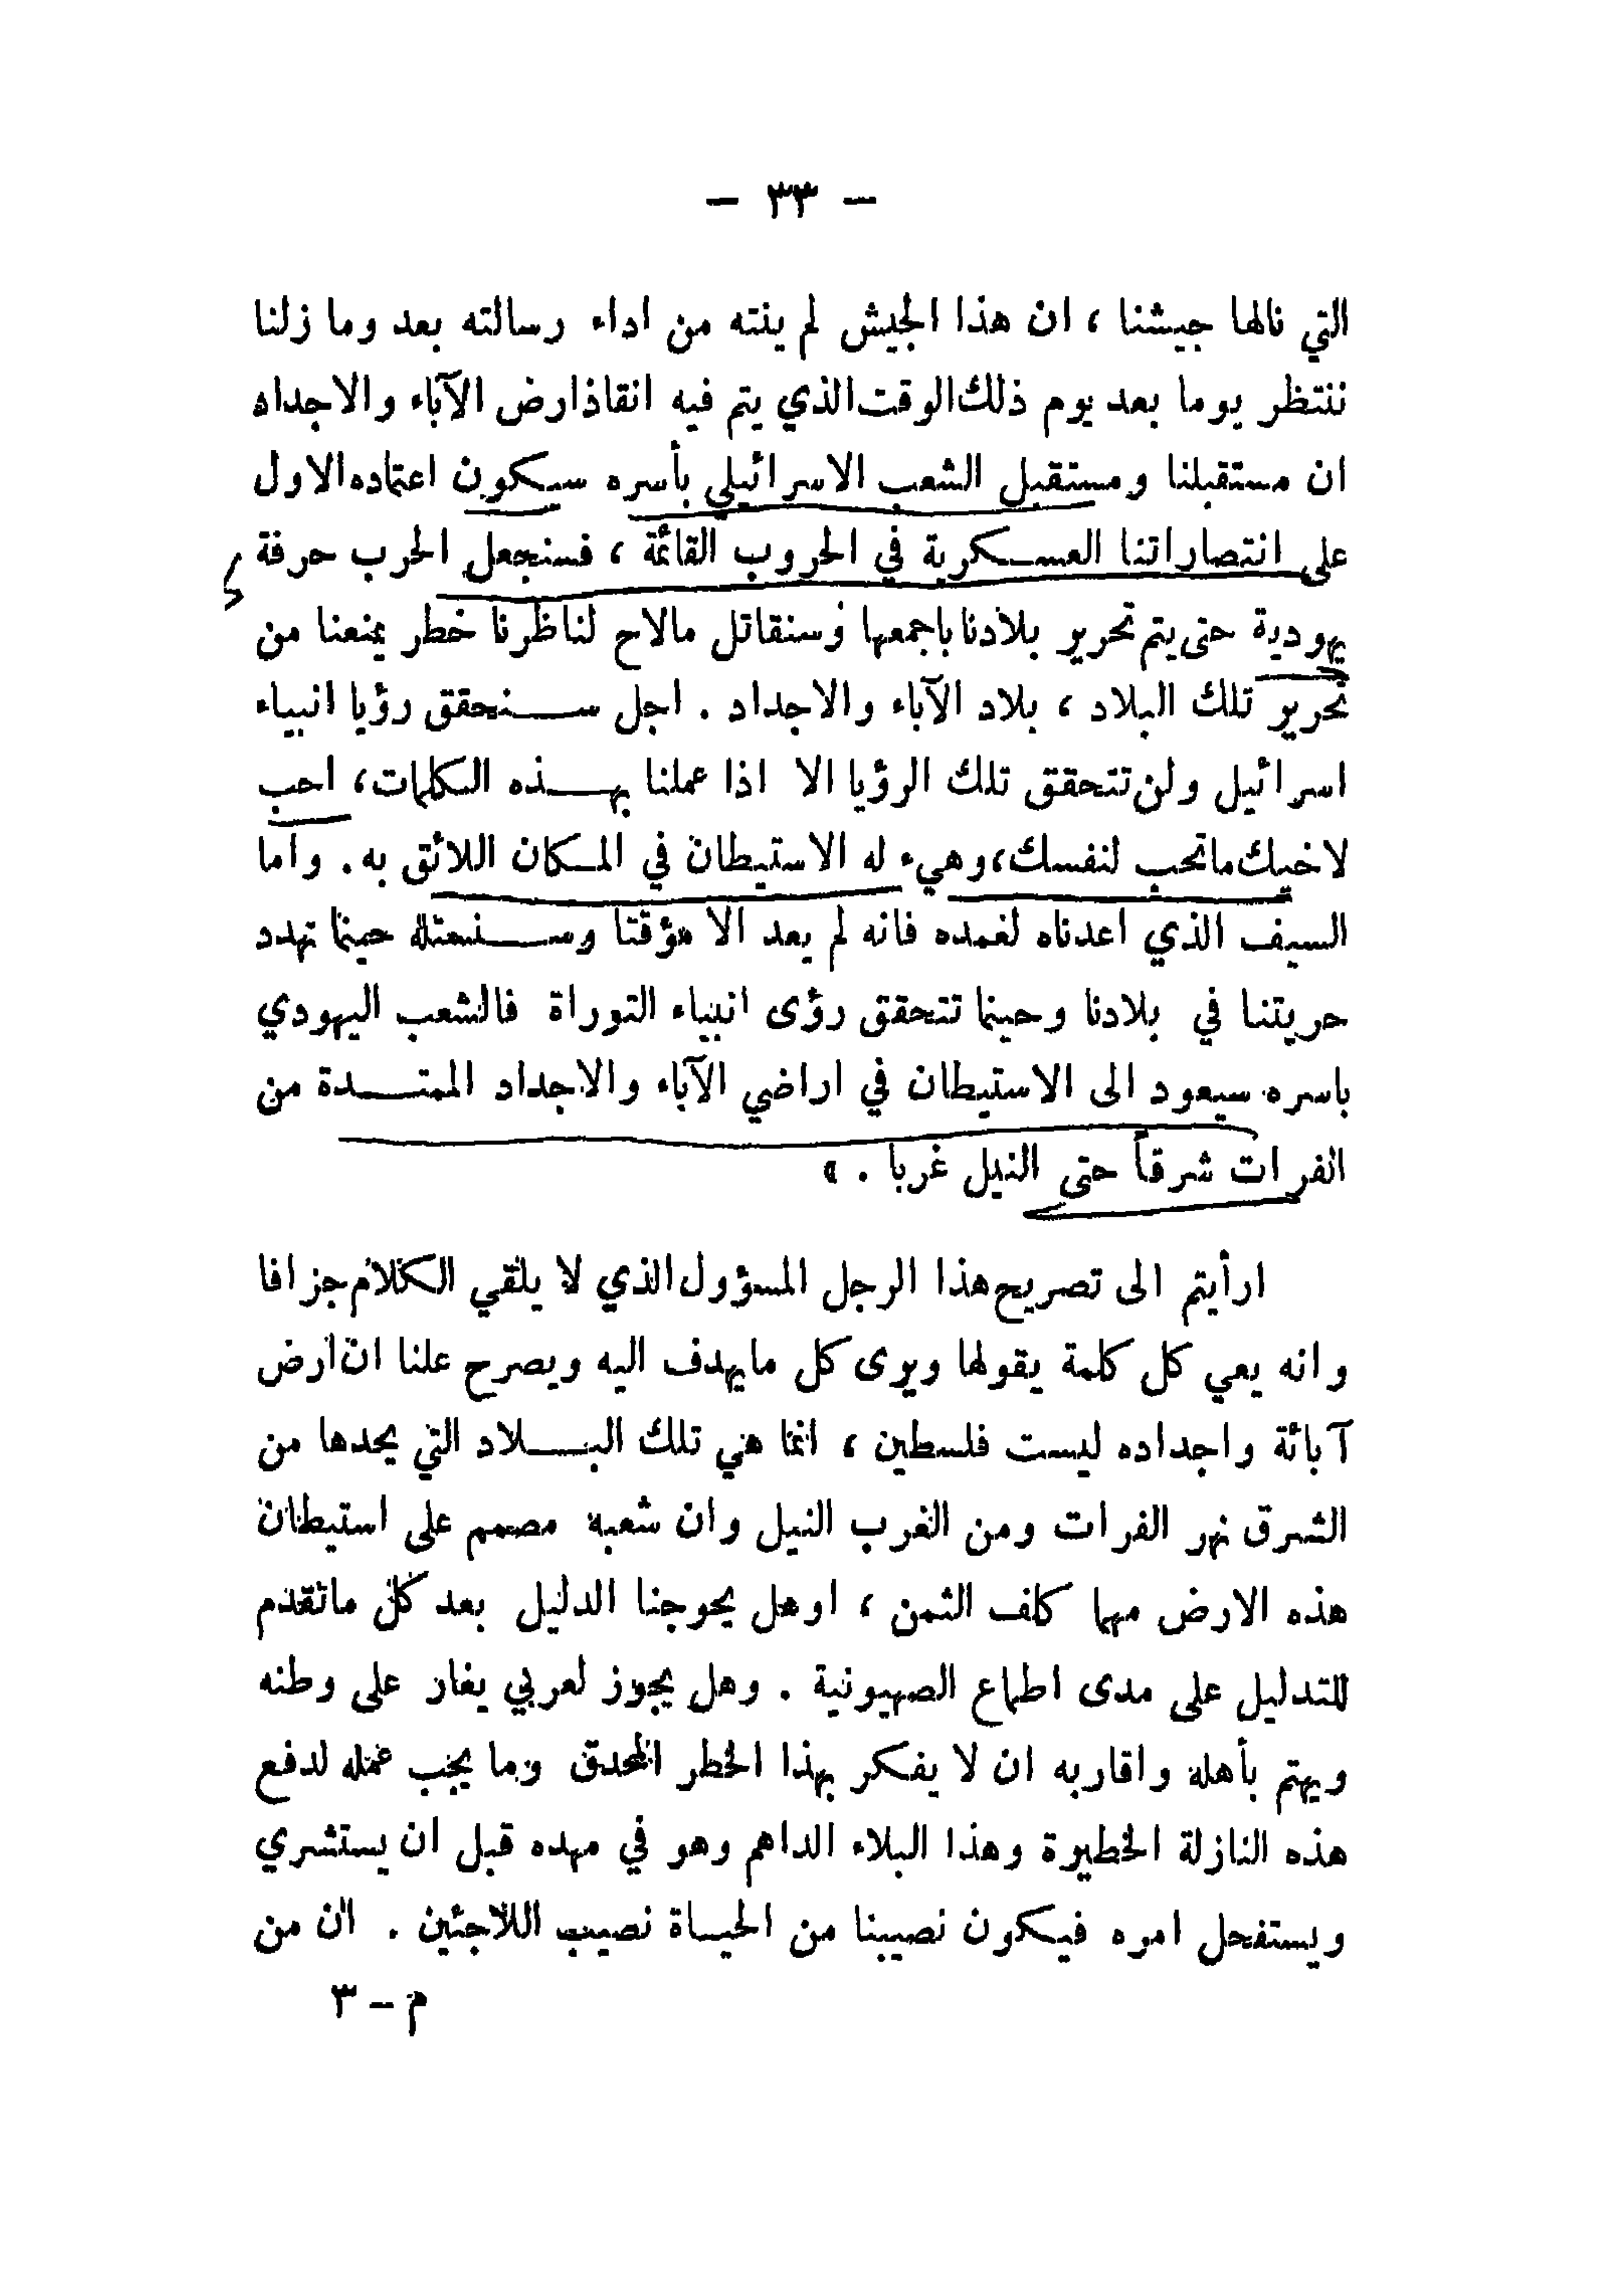 — ٣٣ —
التي نالها جيشنا ، ان هذا الجيش لم ينته من اداء رسالته بعد وما زلنا
ننتظر يوما بعد يوم ذلك الوقت الذي يتم فيه انقاذ ارض الآباء والاجداد
ان مستقبلنا ومستقبل الشعب الاسرائيلي بأسره سيكون اعتماده الاول
على انتصاراتنا العسكرية في الحروب القائمة ، فسنجعل الحرب حرفة
يهودية حتى يتم تحرير بلادنا باجمعها وسنقاتل مالاح لناظرنا خطر يمنعنا من
تحرير تلك البلاد ، بلاد الآباء والاجداد . اجل سنحقق رؤيا انبياء
اسرائيل ولن تتحقق تلك الرؤيا الا اذا عملنا بهذه الكلمات ، احب
لاخيك ماتحب لنفسك ، وهيء له الاستيطان في المكان اللائق به . واما
السيف الذي اعدناه لغمده فانه لم يعد الا مؤقتا وسنمتثله حينما تهدد
حريتنا في بلادنا وحينما تتحقق رؤى انبياء التوراة فالشعب اليهودي
باسره سيعود الى الاستيطان في اراضي الآباء والاجداد الممتدة من
الفرات شرقاً حتى النيل غربا . »
ارأيتم الى تصريح هذا الرجل المسؤول الذي لا يلقي الكلام جزافا
وانه يعي كل كلمة يقولها ويرى كل مايهدف اليه ويصرح علنا ان ارض
آبائة واجداده ليست فلسطين ، انما هي تلك البلاد التي يحدها من
الشرق نهر الفرات ومن الغرب النيل وان شعبه مصمم على استيطان
هذه الارض مهما كلف الثمن ، اوهل يحوجنا الدليل بعد كل ماتقدم
للتدليل على مدى اطماع الصهيونية . وهل يجوز لعربي يغار على وطنه
ويهتم بأهله واقاربه ان لا يفكر بهذا الخطر المحدق وما يجب عمله لدفع
هذه النازلة الخطيرة وهذا البلاء الداهم وهو في مهده قبل ان يستشري
ويستفحل امره فيكون نصيبنا من الحياة نصيب اللاجئين . ان من
م – ٣